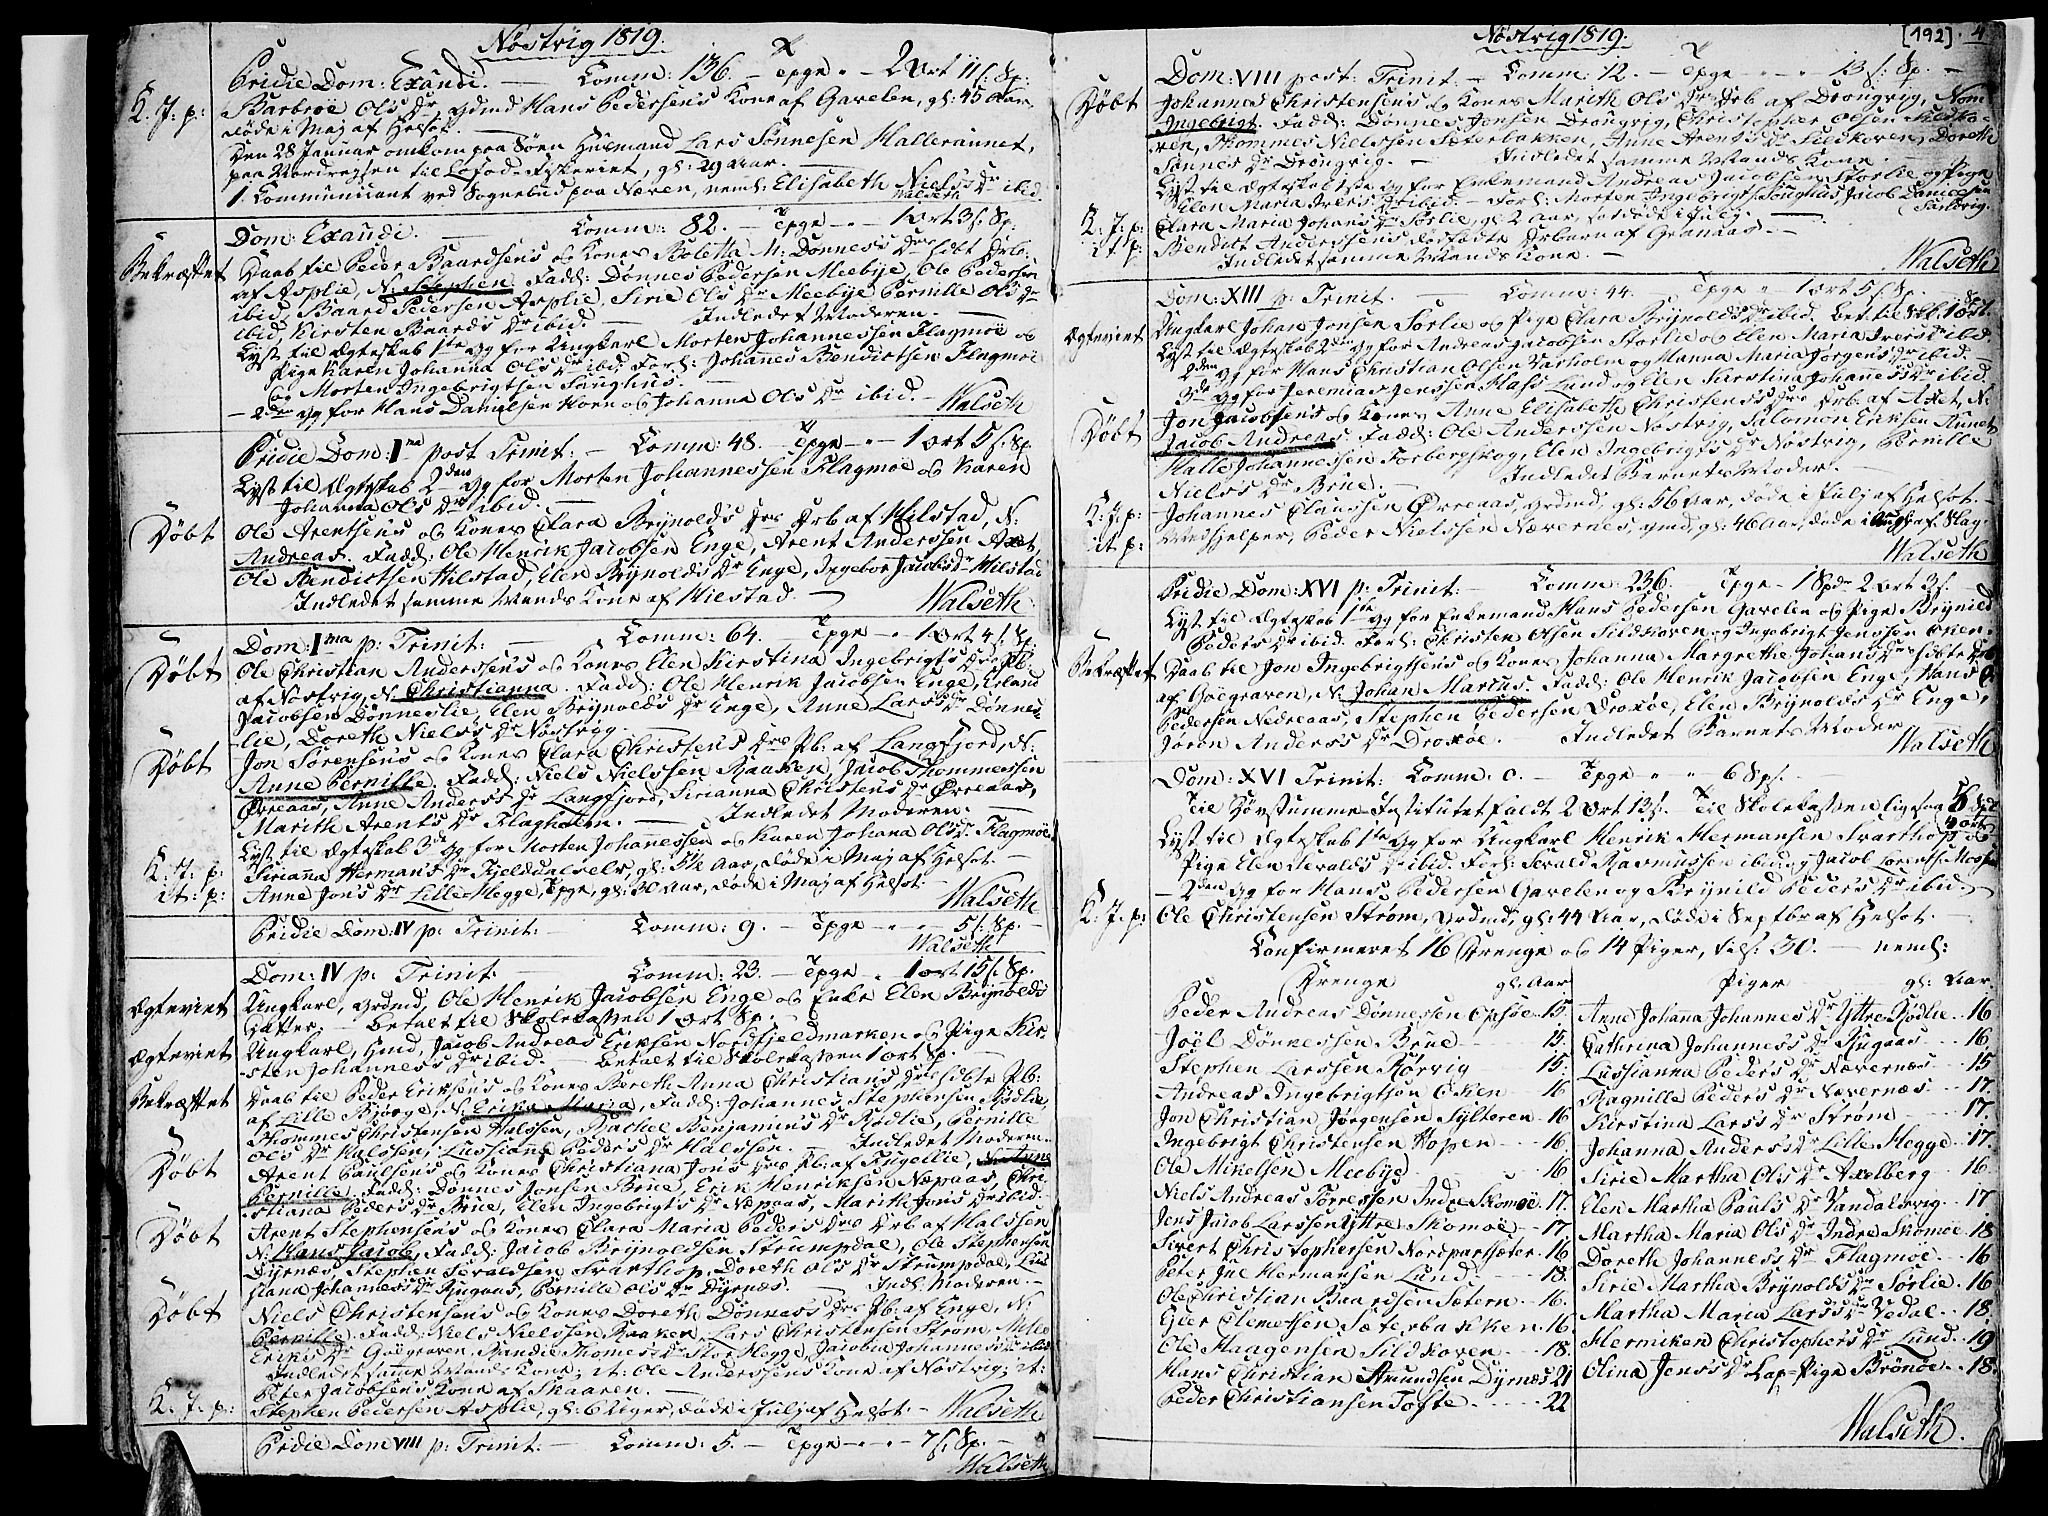 Nöstvig 1819.
Pridie Dom: Exaudi. — Comm: 136. — Tpge " - 2 Ort 11 s: Sp:
K. J. p: Barbroe Ols Dr, Gdmd Hans Pedersens Kone af Gavelen, gl: 45 Aar,
døde i Maj af Helsot. —
Den 28 Januar omkom paa Søen Huusmand Lars Sønnesen Halleraunet,
paa Nordreysen til Lofod-Fiskeriet, gl: 29 Aar. —
1. Communicant ved Sognebud paa Næren, neml: Elisabeth Niels's Dr ibid.
Walseth
Dom: Exaudi. — Comm: 82. — Tpge " - 1 ort 3 s. Sp.
Bekræftet Daab til Peder Baardsens og Kones Boletta M: Dønnes's Drs
af Asplie, N: Stephen. Fadd: Dønnes Pedersen Meebye, Ole Pedersen
ibid, Baard Pedersen Asplie, Sirie Ols Dr Meebye Pernille Ols Dr
ibid, Kirsten Baards Dr ibid. — Indledet Moderen. —
Lyst til Ægteskab 1ste Gg for Ungkarl Morten Johannessen Flagmoe og
Pige Karen Johanna Ols Dr ibid. Forl: Johannes Bendictsen Flagmoe
og Morten Ingebrigtsen Sanghus. —
— 2den Gg for Hans Danielsen Horn og Johanna Ols Dr ibid. — Walseth
Pridie Dom: Ima post Trinit: — Comm: 48. — Tpge — " - 1 ort 5 s. Sp
Lyst til Ægteskab 2den Gg for Morten Johannessen Flagmoe og Karen
Johanna Ols Dr ibid. —
Døbt Ole Arentsens og Kones Clara Brynolds Drs Drb af Hilstad, N:
Andreas. Fadd: Ole Henrik Jacobsen Enge, Arent Anderssen Axet,
Ole Bendictsen Hilstad, Elen Brynolds Dr Enge, Ingebor Jacobs Dr Hilstad
Indledet samme Mands Kone af Hilstad. — Walseth
Dom: Ima p: Trinit: Comm: 64. — Tpge — " - 1 Ort 4 s. Sp
Døbt Ole Christian Anderssens og Kones Elen Kirstina Ingebrigts Drs Pb:
af Nöstvig, N: Christianna. Fadd: Ole Henrik Jacobsen Enge, Erland
Jacobsen Dönneslie, Elen Brynolds Dr Enge, Anne Lars's Dr Dönnes-
lie, Doreth Niels's Dr Nöstvig. —
Døbt Jon Sørensens og Kones Clara Christens Drs Pb: af Langfjord, N:
Anne Pernille. Fadd: Niels Nielssen Baakken, Jacob Thommessen
Øvreaas, Anne Anders's Dr Langfjord, Sirianna Christens Dr Øvreaas,
Marith Arents Dr Flagholm. — Indledet Moderen. —
Lyst til Ægteskab 3de Gg for Morten Johannessen og Karen Johana Ols Dr Flagmoe.
K. J. p: Sirianna Hermans Dr Fjelddalselv, gl: 5½ Aar, døde i Maj af Helsot. —
it: p: Anne Jons Dr Lille-Hegge, Tpge, gl: 30 Aar, døde i Maj af Helsot. —
Walseth
Pridie Dom: IV p: Trinit: — Comm: 9. — Tpge — " - 5 s. Sp. —
Walseth
Dom: IV p: Trinit: — Comm: 23. — Tpge — " - 1 ort 15 s. Sp.
Ægteviet Ungkarl, Grdmd, Ole Henrik Jacobsen Enge og Enke Elen Brynolds
Datter, — Betalt til Skolekassen 1 Ort Sp. —
Ægteviet Ungkarl, Hmd, Jacob Andreas Eriksen Nordfjeldmarken og Pige Kir-
sten Johannes's Dr ibid. Betalt til Skolekassen 1 ort Sp. —
Bekræftet Daab til Peder Eriksens og Kones Bereth Anna Christians Drs sidste Pb:
af Lille Bjørge, N: Erika Maria, Fadd: Johannes Stephensen Rødlie,
Thommes Christensen Halssen, Rachel Benjamins Dr Rødlie, Pernille
Ols Dr Halssen, Lussianna Peders Dr Halssen. Indledet Moderen. —
Døbt Arent Paulsens og Kones Christiana Jons Drs Pb: af Fugellie, N: Anne
Pernille. Fadd: Dønnes Jonsen Brue, Erik Henriksen Næpaas, Chri-
stiana Peders Dr Brue, Elen Ingebrigts Dr Næpaas, Marith Jons Dr ibid.
Døbt Arent Stephensens og Kones Clara Maria Peders Drs Drb af Halssen
N: Hans Jacob, Fadd: Jacob Brynoldsen Strumpdal, Ole Stephensen
Dyrnæs, Stephen Seraldsen Svarthop, Doreth Ols Dr Strumpdal, Lus-
siana Johannes's Dr Rugaas, Pernille Ols Dr Dyrnæs. — Indl: Moderen. —
Døbt Niels Christensens og Kones Doreth Dønnes's Drs Pb. af Enge, N:
Pernille. Fadd: Niels Nielssen Baakken, Lars Christensen Strøm,
Eriks Dr Goegraven, Thomes's Dr Stor Hegge, Jacobia Johannes's Dr ibid
Indledet samme Mands Kone, it: Ole Anderssens Kone af Nöstvig, it:
Peter Jacobsens Kone af Skaaren. —
K. J. p: Stephen Pedersen Asplie, gl: 6 Uger, døde i Julj af Helsot. — Walseth
Pridie Dom VIII p: Trinit: — Comm: 5. — Tpge — " - 7 s. Sp. —
Walseth
Nöstvig 1819.
[192]. 4
Dom: VIII post: Trinit — Comm: 12. — Tpge — " - " - 13 s: Sp. —
Døbt Johannes Christensens og Kones Marith Ols Drs Drb af Drougvig, Nom
Ingebrigt. Fadd: Dønnes Jonsen Drougvig, Christopher Olsen Sildko-
ven, Thommes Nielssen Sæterbakken, Anne Arents Dr Sildkoven, Doreth
Sannes Dr Drougvig. — Indledet samme Mands Kone. —
Lyst til Ægteskab 1ste Gg for Enkemand Andreas Jacobsen Storlie og Pige
Elen Maria Ivers Dr ibid. — Forl: Morten Ingebrigts Songhus, Jacob Danielsen
Sandvig.
K. J. p: Clara Maria Johans Dr Sørlie, gl: 2 Aar, døde i Julj. —
it p: Bendict Anderssens dødfødte Drbarn af Granaas. —
Indledet samme Mands Kone. — Walseth
Dom: XIII p: Trinit. — Comm: 44. Tpge " - 1 ort 5 s. Sp. —
Ægteviet Ungkarl Johan Jonsen Sørlie og Pige Clara Brynolds Dr ibid. Bet: til Skk. 1 Ort.
Lyst til Ægteskab 2den Gg for Andreas Jacobsen Storlie og Elen Maria Ivers Dr ibid.
2den Gg for Hans Christian Olsen Varholm og Hanna Maria Jørgens Dr ibid. —
3de Gg for Jeremias Jenssen Hass Lund og Elen Kirstina Johannes's Dr ibid.
Døbt Jon Jacobsens og Kones Anne Elisabeth Christens's Drs Drb. af Axet, N:
Jacob Andreas. Fadd: Ole Anderssen Nöstvig, Salomon Eriksen Aunet
Halle Johannessen Forbergskog, Elen Ingebrigts Dr Nöstvig, Pernille
Niels's Dr Brue. — Indledet Barnets Moder. —
K. J. p: Johannes Claussen Øvreaas, Grdmd, gl: 56 Aar, døde i Julj af Helsot. —
it p: Medhjelper, Peder Nielssen Nævernes, gmd, gl: 46 Aar, døde i Aug. af Slag. —
Walseth
Pridie Dom: XVI p: Trinit: — Comm: 236. Tpge — 1 Spd 2 ort 3 s.
Lyst til Ægteskab 1ste Gg for Enkemand Hans Pedersen Gavelen og Pige Brynild
Peders Dr ibid: Forl: Christen Olsen Sildkoven og Ingebrigt Jenssen Oxen. —
Bekræftet Daab til Jon Ingebrigtsens og Kones Johanna Margrethe Johans Drs sidste Drb
af Goegraven, N: Johan Marcus. Fadd: Ole Henrik Jacobsen Enge, Hans
Pedersen Nedreaas, Stephen Pedersen Droxøe, Elen Brynolds Dr Enge,
Joren Anders's Dr Droxøe. — Indledet Barnets Moder Walseth
Dom: XVI Trinit: Comm: 0. — Tpge " - " - 6 Sps. —
Til Døvstumme-Institutet faldt 2 Ort 13 s. Til Skolekassen ligesaa
Lyst til Ægteskab 1ste Gg for Ungkarl Henrik Hermansen Svarthop og
Pige Elen Seralds Dr ibid. Forl: Serald Rasmussen ibid og Jacob Lorents: Mos
— 2den Gg for Hans Pedersen Gavelen og Brynild Peders Dr ibid. —
K. J. p: Ole Christensen Strøm, Grdmd, gl: 44 Aar, døde i Septbr af Helsot. —
Confirmeret 16 Drenge og 14 Piger, tils: 30. — neml:
Drenge gl: Aar
Peder Andreas Dönnessen Opsöe 15.
Joël Dönnessen Brue — 15.
Stephen Larssen Rörvig — 15.
Andreas Ingebrigtsen Oxen — 16
Jon Christian Jörgensen Sylteren 16
Ingebrigt Christensen Hopen — 16.
Ole Mikelsen Meebye — 16
Niels Andreas Torressen Indre Skomoe 17.
Jens Jacob Larssen Yttre Skomoe — 17
Sivert Christophersen Nordpartsæter 16
Peter Jul Hermansen Lund — 18.
Ole Christian Baardsen Sætern — 16.
Gjer Clemetsen Sæterbakken 16.
Ole Haagensen Sildkoven — 18.
Hans Christian Amundsen Dyrnæs 21
Peder Christiansen Tofte — 22
Piger gl: Aar
Anne Johanna Johannes's Dr Yttre Rödlie 16
Cathrina Johannes's Dr Rugaas — 16.
Lussianna Peders Dr Nævernæs — 15
Ragnille Peders Dr Nævernæs — 17
Kirstina Lars's Dr Ström — 17.
Johanna Anders's Dr Lille Hegge 17.
Sirie Martha Ols Dr Axelberg — 16.
Elen Martha Pauls Dr Vandalsvig 17
Martha Maria Ols Dr Indre Skomoe 18
Doreth Johannes's Dr Flagmoe — 16
Sirie Martha Brynolds Dr Sörlie 16
Martha Maria Lars's Dr Vedal — 18.
Herniken Christophers Dr Lund 19
Olina Jens's Dr Lap-Pige Brönöe 18.
Walseth.